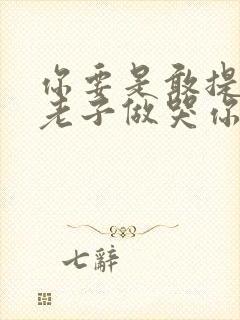 你要是敢提
老子做哭你
七辭